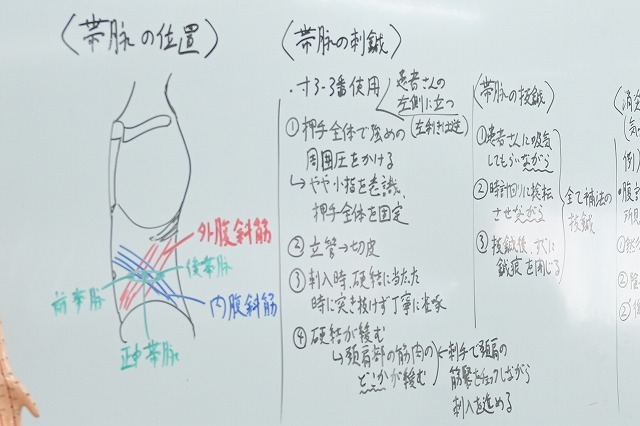 〈帯脈の位置〉
外腹斜筋
後帯脈
前帯脈
内腹斜筋
正中帯脈
〈帯脈の刺鍼〉
・寸3-3番使用
患者さんの
左側に立つ
(左利きは逆)
①押手全体で強めの
周囲圧をかける
↳やや小指を意識、
押手全体を固定
②立管→切皮
③刺入時、硬結に当たった
時に突き抜けず丁寧に
④硬結が緩む
↳頚肩部の筋肉の
どこかが緩む
刺手で頚肩の
筋緊をチェックしながら
刺入を進める
〈帯脈の抜鍼〉
①患者さんに吸気
してもらいながら
②時計回りに捻転
させながら
③抜鍼後、すぐに
鍼痕を閉じる
全て補法の
抜鍼
〈消
(気
例)
・腹
①
②
②